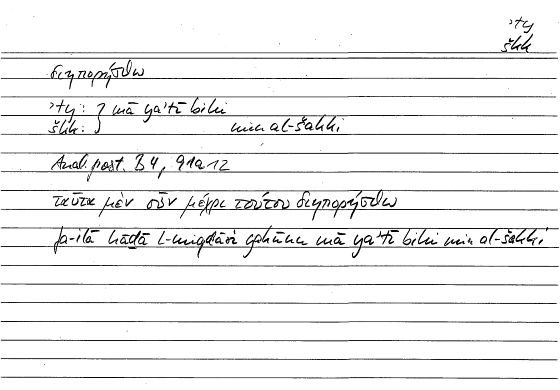 ʾty
škk
διηπορήσθω
ʾty: } mā yaʾtī bihi
škk: } min al-šakki
Anal. post. B 4, 91a12
ταῦτα μὲν οὖν μέχρι τούτου διηπορήσθω
fa-ilā hāḏā l-miqdāri yakūnu mā yaʾtī bihi min al-šakki